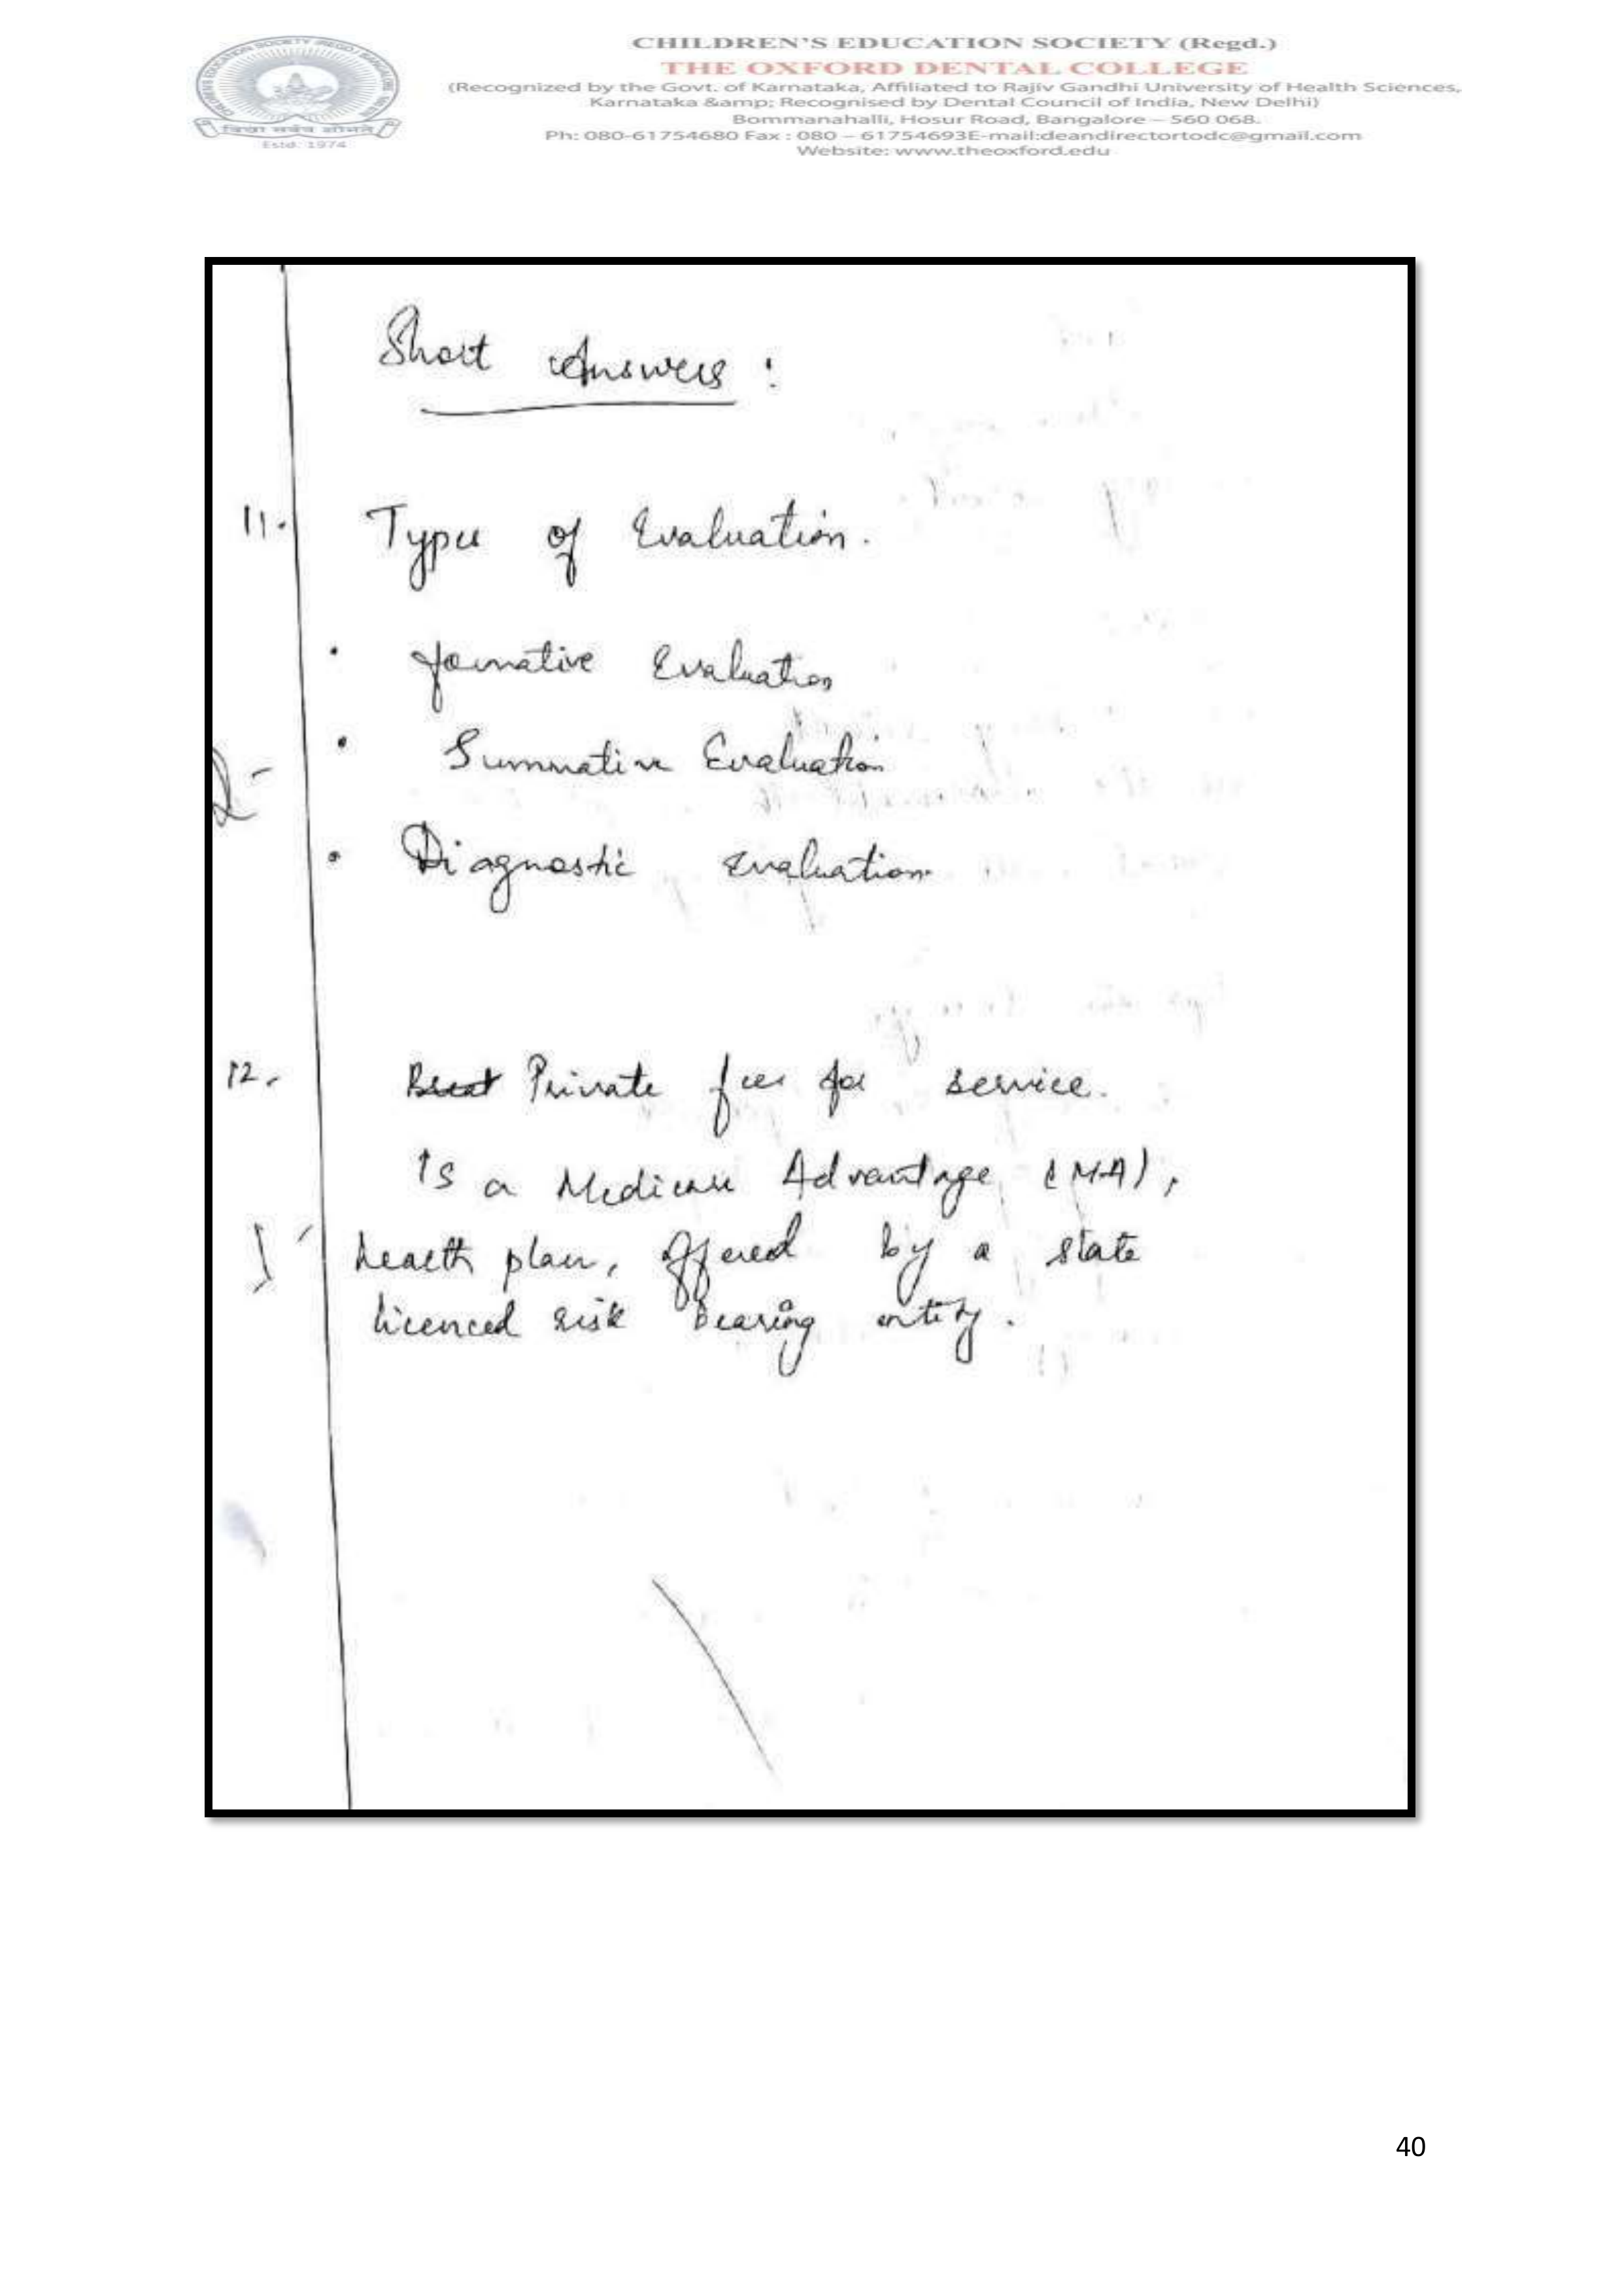 CHILDREN'S EDUCATION SOCIETY (Regd.)
THE OXFORD DENTAL COLLEGE
(Recognized by the Govt. of Karnataka, Affiliated to Rajiv Gandhi University of Health Sciences,
Karnataka &amp; Recognised by Dental Council of India, New Delhi)
Bommanahalli, Hosur Road, Bangalore – 560 068.
Ph: 080-61754680 Fax : 080 – 61754693E-mail:deandirectortodc@gmail.com
Website: www.theoxford.edu
Estd. 1974
Short Answers :
11. Types of Evaluation.
• formative Evaluation
• Summative Evaluation
• Diagnostic evaluation.
12. Private fees for service.
Is a Medicare Advantage (MA),
health plan, offered by a state
licenced risk bearing entity.
40